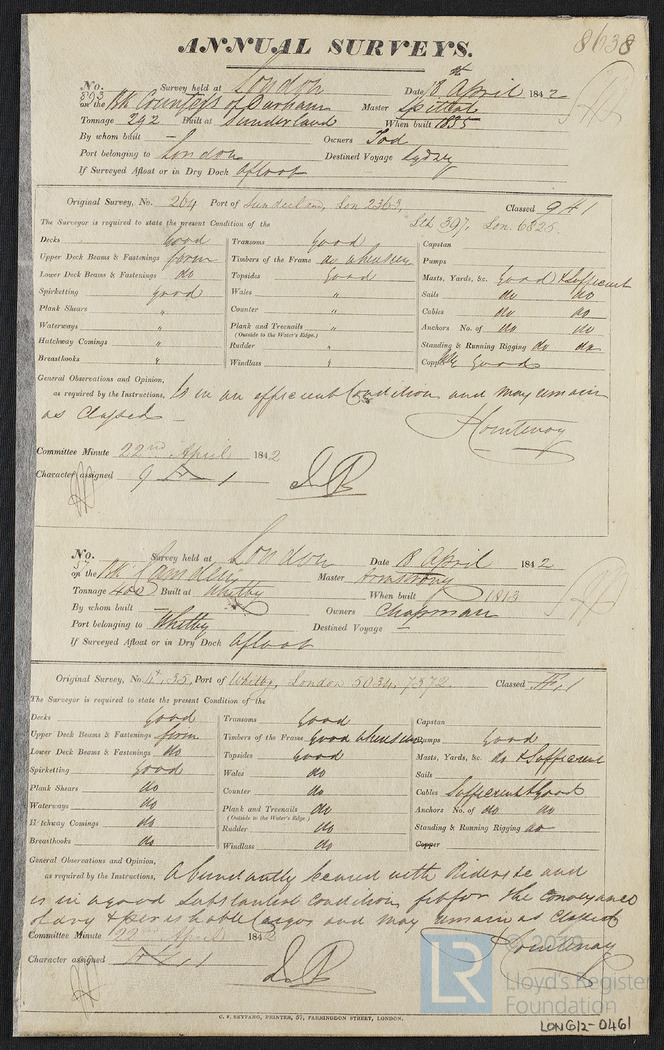 8638
ANNUAL SURVEYS.
No. 893 Survey held at London Date 18th April 1842
on the Bk Countess of Durham Master Spittal
Tonnage 292 Built at Sunderland When built 1835
By whom built — Owners Tod
Port belonging to London Destined Voyage Sydney
If Surveyed Afloat or in Dry Dock Afloat
Original Survey, No. 264 Port of Sunderland, Lon 2363, Classed 9 A 1
The Surveyor is required to state the present Condition of the Sld 397, Lon. 6825.
Decks Good Transoms Good Capstan
Upper Deck Beams & Fastenings firm Timbers of the Frame do when seen Pumps
Lower Deck Beams & Fastenings do Topsides Good Masts, Yards, &c. Good & Sufficient
Spirketting good Wales " Sails do do
Plank Shears " Counter " Cables do do
Waterways " Plank and Treenails " Anchors No. of do do
(Outside to the Water's Edge.)
Hatchway Comings " Rudder " Standing & Running Rigging do do
Breasthooks " Windlass " Copper Good
General Observations and Opinion,
as required by the Instructions, Is in an efficient Condition and may remain
as Classed —
Committee Minute 22nd April 1842
Character assigned 9 A 1
No. 57 Survey held at London Date 18 April 1842
on the Bk Camden Master Armstrong
Tonnage 400 Built at Whitby When built 1813
By whom built — Owners Chapman
Port belonging to Whitby Destined Voyage —
If Surveyed Afloat or in Dry Dock Afloat
Original Survey, No. 35, Port of Whitby, London 5034, 7372 Classed 1
The Surveyor is required to state the present Condition of the
Decks Good Transoms Good Capstan
Upper Deck Beams & Fastenings firm Timbers of the Frame Good when seen Pumps Good
Lower Deck Beams & Fastenings do Topsides Good Masts, Yards, &c. do & Sufficient
Spirketting Good Wales do Sails
Plank Shears do Counter do Cables Sufficient & Good
Waterways do Plank and Treenails do Anchors No. of do do
(Outside to the Water's Edge.)
Hatchway Comings do Rudder do Standing & Running Rigging do
Breasthooks do Windlass do Copper
General Observations and Opinion,
as required by the Instructions, Abundantly secured with Riders &c and
is in a good Substantial Condition, fit for the conveyance
of dry & perishable Cargos and may remain as Classed
Committee Minute 22nd April 1842
Character assigned 1
C. F. SEYFANG, PRINTER, 57, FARRINGDON STREET, LONDON.
LR © 2020
Lloyd's Register
Foundation
LON612-0461